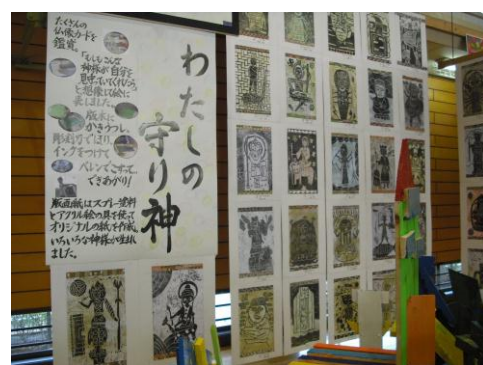 わたしの
守り神
たくさんの
仏像カードを
鑑賞。
「もしもこんな
神様が自分を
見守っていてくれたら」
と想像して絵に
表しました。
版木に
かきうつし、
彫刻刀でほり、
インクをつけて
バレンでこすって、
できあがり!
版画紙はスプレー塗料
とアクリル絵の具を使って
オリジナルの紙を作成。
いろいろな神様が生まれ
ました。